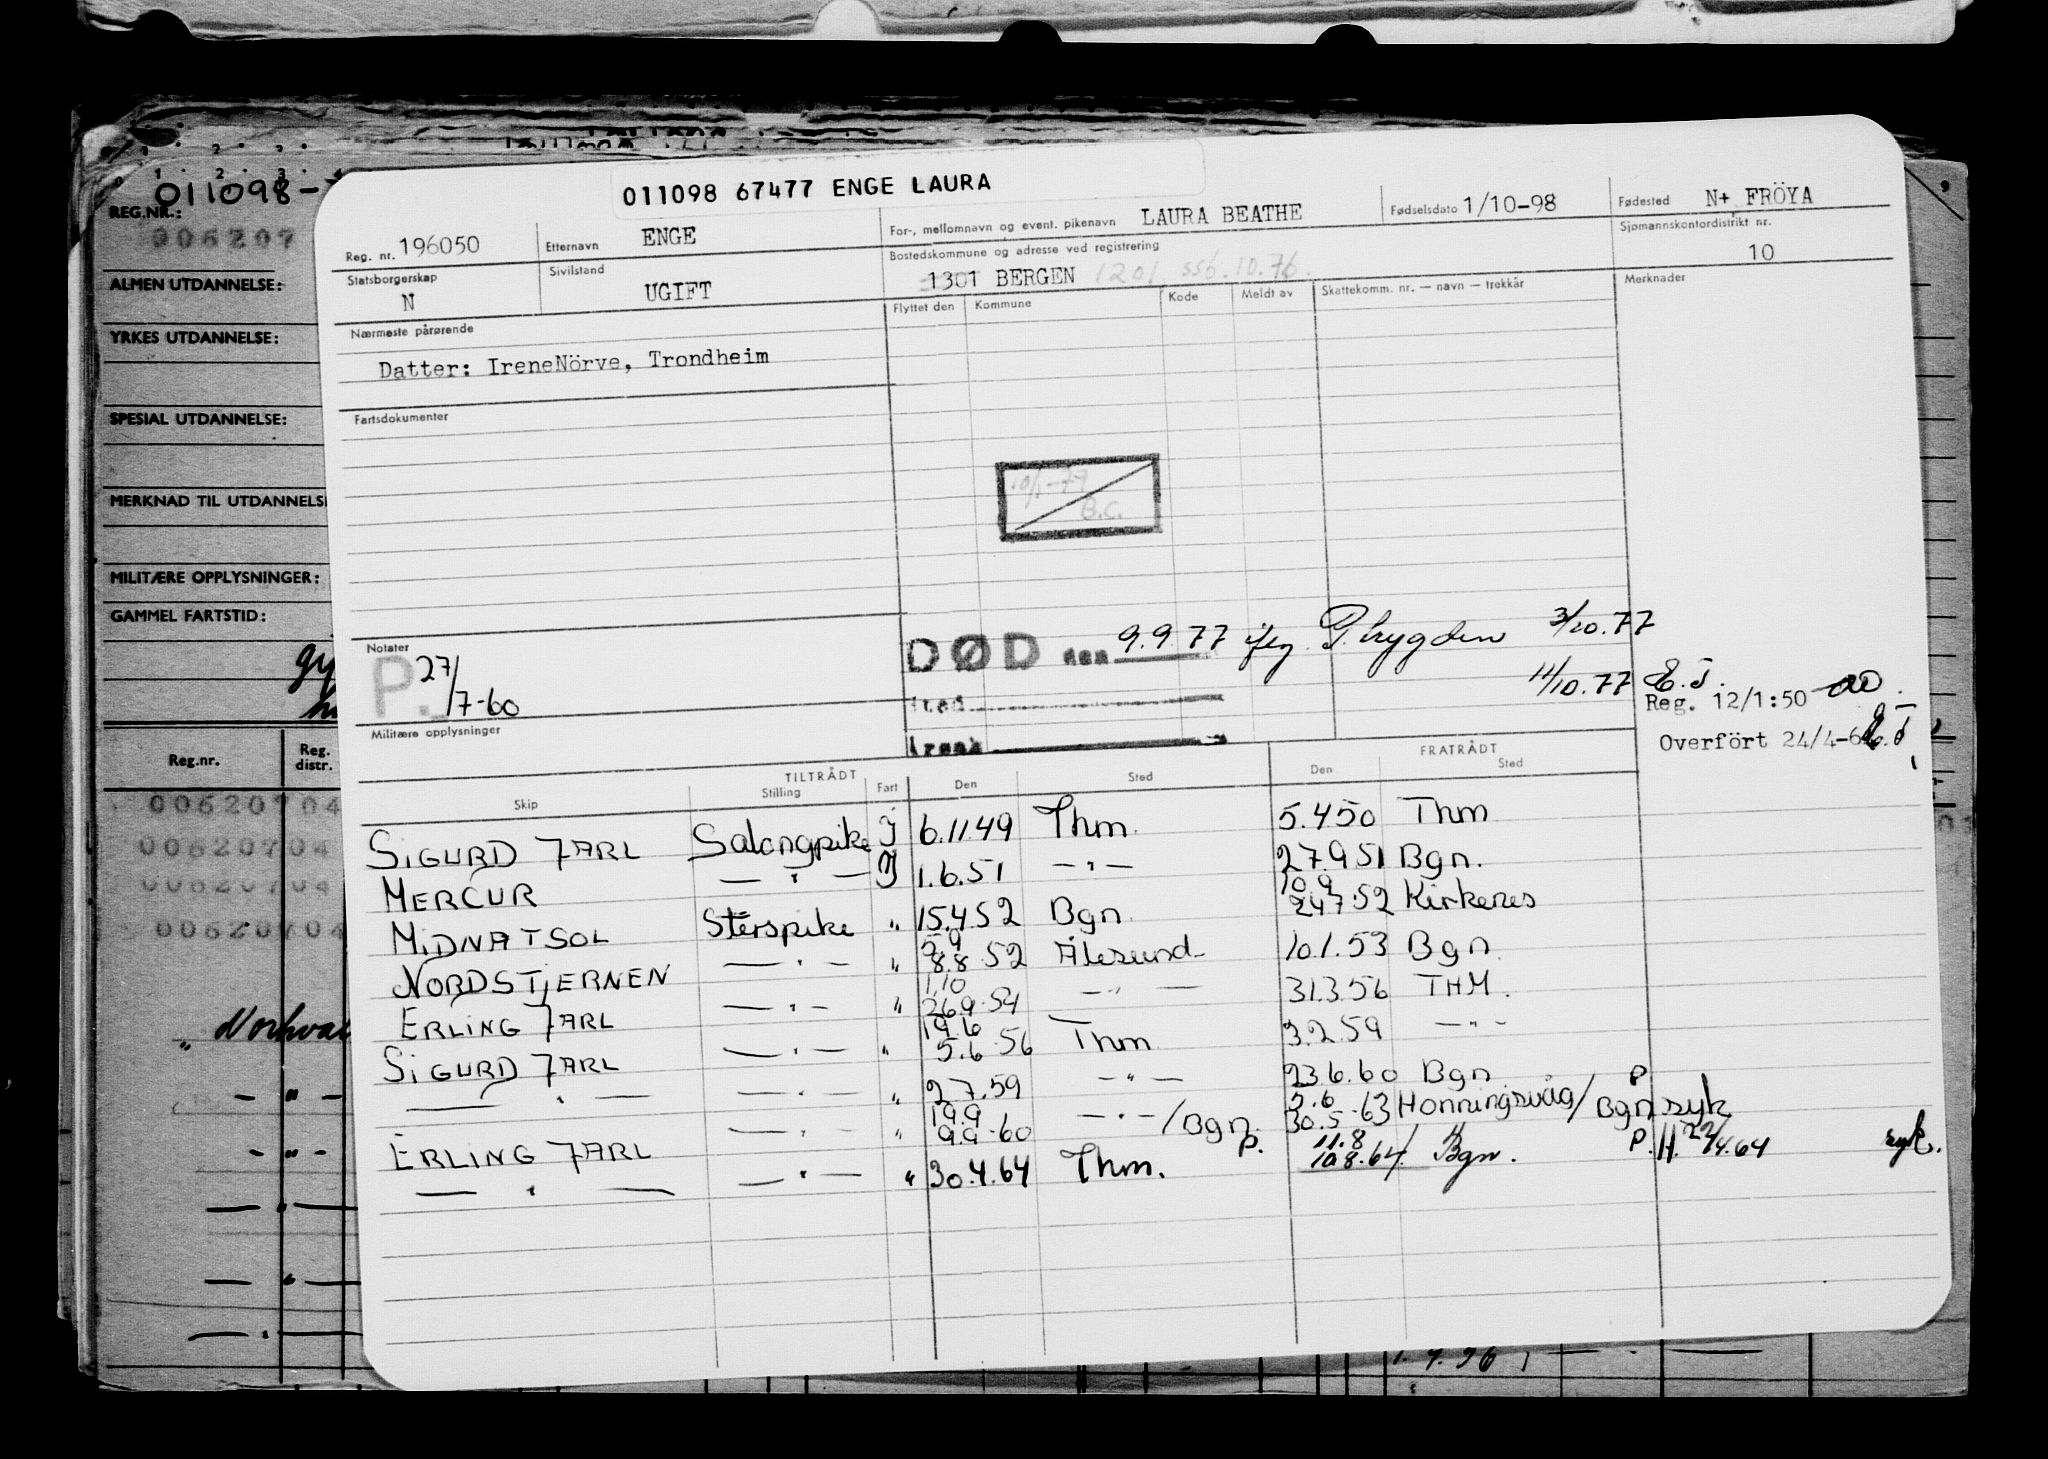 011098 67477 ENGE LAURA
011098-
REG.NR.:
006207
ALMEN UTDANNELSE:
YRKES UTDANNELSE:
SPESIAL UTDANNELSE:
MERKNAD TIL UTDANNELSE
MILITÆRE OPPLYSNINGER:
GAMMEL FARTSTID:
Reg.nr. Reg. distr.
00620704
00620704
00620704
00620704
Reg. nr. 196050 Etternavn ENGE For-, mellomnavn og event. pikenavn LAURA BEATHE Fødselsdato 1/10-98 Fødested N+ FRÖYA
Statsborgerskap N Sivilstand UGIFT Bostedskommune og adresse ved registrering 1301 BERGEN 1201 ssb.10.76. Sjømannskontordistrikt nr. 10
Nærmeste pårørende Flyttet den Kommune Kode Meldt av Skattekomm. nr. — navn — trekkår Merknader
Datter: IreneNörve, Trondheim
Fartsdokumenter
10/1-77
B.C.
Notater
P. 27/7-60
DØD den 9.9.77 3/10.77
sted
11/10.77 E.J.
Reg. 12/1:50
Overført 24/4-6
Militære opplysninger
TILTRÅDT FRATRÅDT
Skip Stilling Fart Den Sted Den Sted
SIGURD JARL Salongpike J 6.11.49 Thm. 5.4 50 Thm
MERCUR — " — J 1.6.51 — " — 27.9 51 Bgn.
MIDNATSOL Sterspike " 15.4 52 Bgn. 10.9 24.7.52 Kirkenes
NORDSTJERNEN — " — " 5.9 8.8 52 Ålesund 10.1.53 Bgn.
ERLING JARL — " — " 1.10 26.9.54 — " — 31.3.56 THM.
SIGURD JARL — " — " 19.6 5.6 56 Thm 3.2.59 — " —
— " — — " — " 2.7.59 — " — 23.6.60 Bgn P
ERLING JARL — " — " 19.9 9.9.60 — " — / Bgn. P. 5.6 30.5.63 Honningsvåg / Bgn syk
— " — — " — " 30.4.64 Thm. 11.8 10.8.64. Bgn. P.H. 22/4.64 syk.